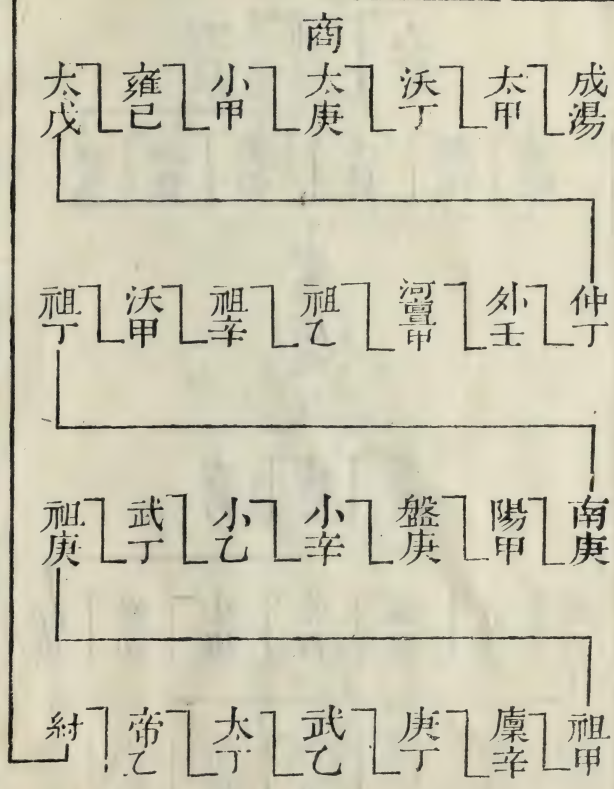 商
成湯 太甲 沃丁 太庚 小甲 雍己 太戊
仲丁 外壬 河亶甲 祖乙 祖辛 沃甲 祖丁
南庚 陽甲 盤庚 小辛 小乙 武丁 祖庚
祖甲 廩辛 庚丁 武乙 太丁 帝乙 紂